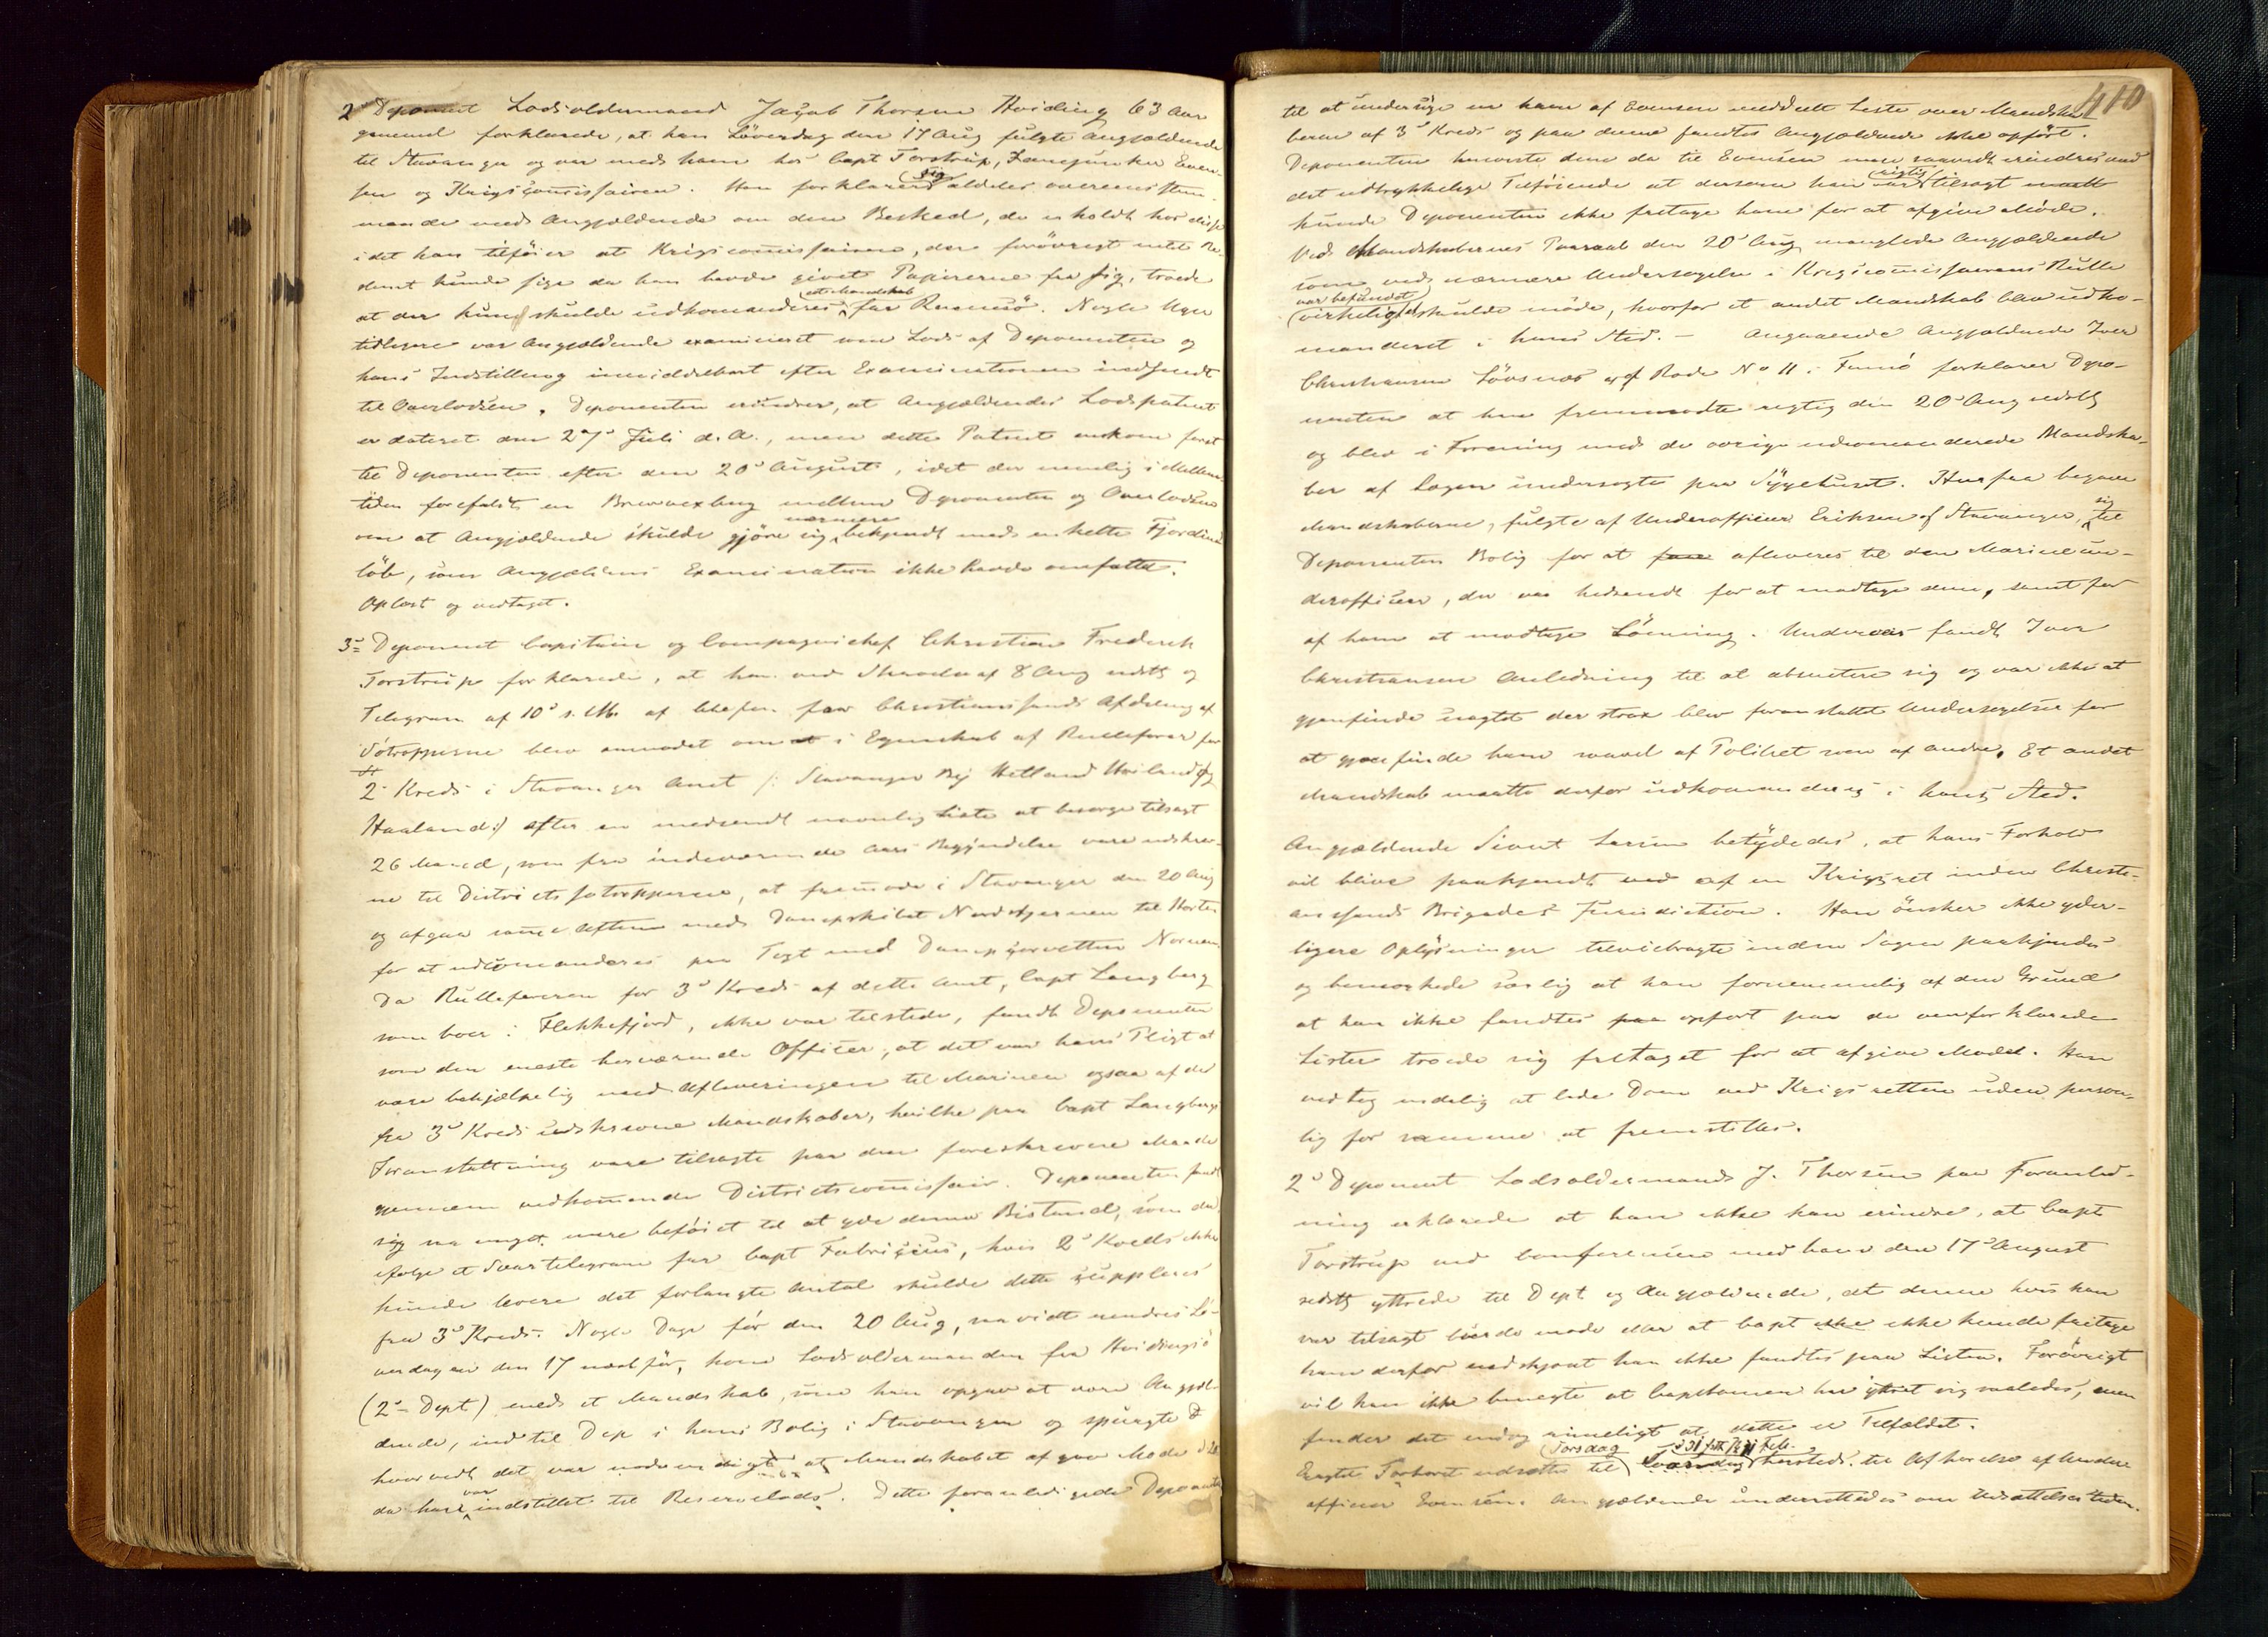 2d Deponent Lodsoldermand Jacob Thorsen Hviding 63 Aar
gammel forklarede, at han Löverdag den 17 Aug fulgte Angjældende
til Stavanger og var med ham hos Capt Torstrup, Even-
sen og Krigscomissairen. Han forklarer sig aldeles overeensstem-
mende med Angjældende om den Besked, de erholdt hos disse
idet han tilföier at Krigscomissairen, der forövrigt intet
kunde sige da han havde givet Papirerne fra sig, troede
at der kun skulde udkomanderes et Mandskab fra Rennesö. Nogle Uger
tidligere var Angjældende examineret som Lods af Deponenten og
hans Indstilling umiddelbart efter Examinationen indsendt
til Overlodsen. Deponenten erindrer, at Angjældendes Lodspatent
er dateret den 27d Juli d. A., men dette Patent ankom först
til Deponenten efter den 20d August, idet der nemlig i Mellem-
tiden forefaldt en Brevvexling mellem Deponenten og Overlodsen
om at Angjældende skulde gjöre sig nærmere bekjendt med enkelte Fjordind-
löb, som Angjældendes Examination ikke havde omfattet.
Oplæst og vedtaget.
3d Deponent Capitain og Compagnichef Christian Frederik
Torstrup forklarede, at han ved Skrivelse af 8 Aug sidstl og
Telegram af 10d s. M. af Chefen for Christianssands Afdeling af
Sötropperne blev anmodet om at i Egenskab af Rulleförer for
2d Kreds i Stavanger Amt /: Stavanger By Hetland Höiland og
Haaland:/ efter en medsendt navnlig Liste at besörge tilsagt
26 Mand, som fra indeværende Aars Begyndelse vare udskrev-
ne til Districtssötropperne, at fremmöde i Stavanger den 20 Aug
og afgaa samme Aften med Dampskibet Nordstjernen til Horten
for at udcomanderes paa Togt med Dampcorvetten Nornen.
Da Rulleföreren for 3d Kreds af dette Amt, Capt Langberg
som boer i Flekkefjord, ikke var tilstede, fandt Deponenten
som den eneste herværende Officer, at det var hans Pligt at
være behjælpelig med Afleveringen til Marinen ogsaa af de
fra 3d Kreds udskrevne Mandskaber, hvilke paa Capt Langbergs
Foranstaltning vare tilsagte paa den foreskrevne Maade
gjennem vedkommende Districtscomissair. Deponenten fandt
sig saa meget mere beföiet til at yde denne Bistand, som der
ifölge et Svartelegram fra Capt Fabricius, hvis 2d Kreds ikke
kunde levere det forlangte Antal skulde dette suppleres
fra 3d Kreds. Nogle Dage för den 20 Aug, saavidt erindres Lö-
verdagen den 17 næst för, kom Lodsoldermanden fra Hvidingsö
(2d Dept) med et Mandskab, som han opgav at være Angjæl-
dende, ind til Dep i hans Bolig i Stavanger og spurgte D
hvorvidt det var nödvendigt at Mandskabet afgav Möde
da han var indstillet til Reservelods. Dette foranledigede Deponenten
410
til at undersöge en ham af Evensen meddelt Liste over Mandska-
berne af 3d Kreds og paa denne fandtes Angjældende ikke opfört.
Deponenten henviste dem da til Evensen men saavidt erindres med
det udtrykkelige Tilföiende at dersom han var rigtig tilsagt
kunde Deponenten ikke fritage ham for at afgive Möde.
Ved Mandskabernes Paaraab den 20d Aug manglede Angjældende
som ved nærmere Undersögelse i Krigscomissairens Rulle
var befundet virkelig skulde möde, hvorfor et andet Mandskab blev udko-
manderet i hans Sted. – Angaaende Angjældende Iver
Christiansen Lövsnæs af Rode No 11 i Finnö forklarer Depo-
nenten at han fremmödte rigtig den 20d Aug sidstl
og blev i Forening med de övrige udcomanderede Mandska-
ber af Lægen undersögte paa Sygehuset. Herfra begave
Mandskaberne, fulgte af Underofficier Eriksen af Stavanger, sig til
Deponenten Bolig for at afleveres til den Marineun-
derofficeer, der var hidsendt for at modtage dem, samt for
af ham at modtage Lönning. Underveis fandt Iver
Christiansen Anledning til at absentere sig og var ikke at
gjenfinde uagtet der strax blev foranstaltet Undersögelser for
at gjenfinde ham saavel af Politiet som af andre. Et andet
Mandskab maatte derfor udkomanderes i hans Sted.
Angjældende Sivert Larsen betydedes, at hans Forhold
vil blive paakjendt ved af en Krigsret inden Christi-
anssands Brigades Jurisdiction. Han önsker ikke yder-
ligere Oplysninger tilveiebragte inden Sagen paakjendes
og bemærkede særlig at han fornemmelig af den Grund
at han ikke fandtes opfört paa de omforklarede
Lister troede sig fritaget for at afgive Möde. Han
vedtog endelig at lide Dom ved Krigsretten uden person-
lig for samme at fremstilles.
2d Deponent Lodsoldermand J. Thorsen paa Foranled-
ning erklærede at han ikke kan erindre, at Capt
Torstrup ved Conferencen med ham den 17d August
sidstl yttrede til Dept og Angjældende, at denne hvis han
var tilsagt burde möde eller at Capt ikke ikke kunde fritage
ham derfor uedskjönt han ikke fandtes paa Listen. Forövrigt
vil han ikke benegte at Capitainen har yttret sig saaledes, men
finder det endog rimeligt at dette er Tilfældet.
Torsdag
Extra Forhöret udsattes til hersteds til Afhörelse af Under-
officeer Evensen. Angjældende underrettedes om Udsættelsestiden.